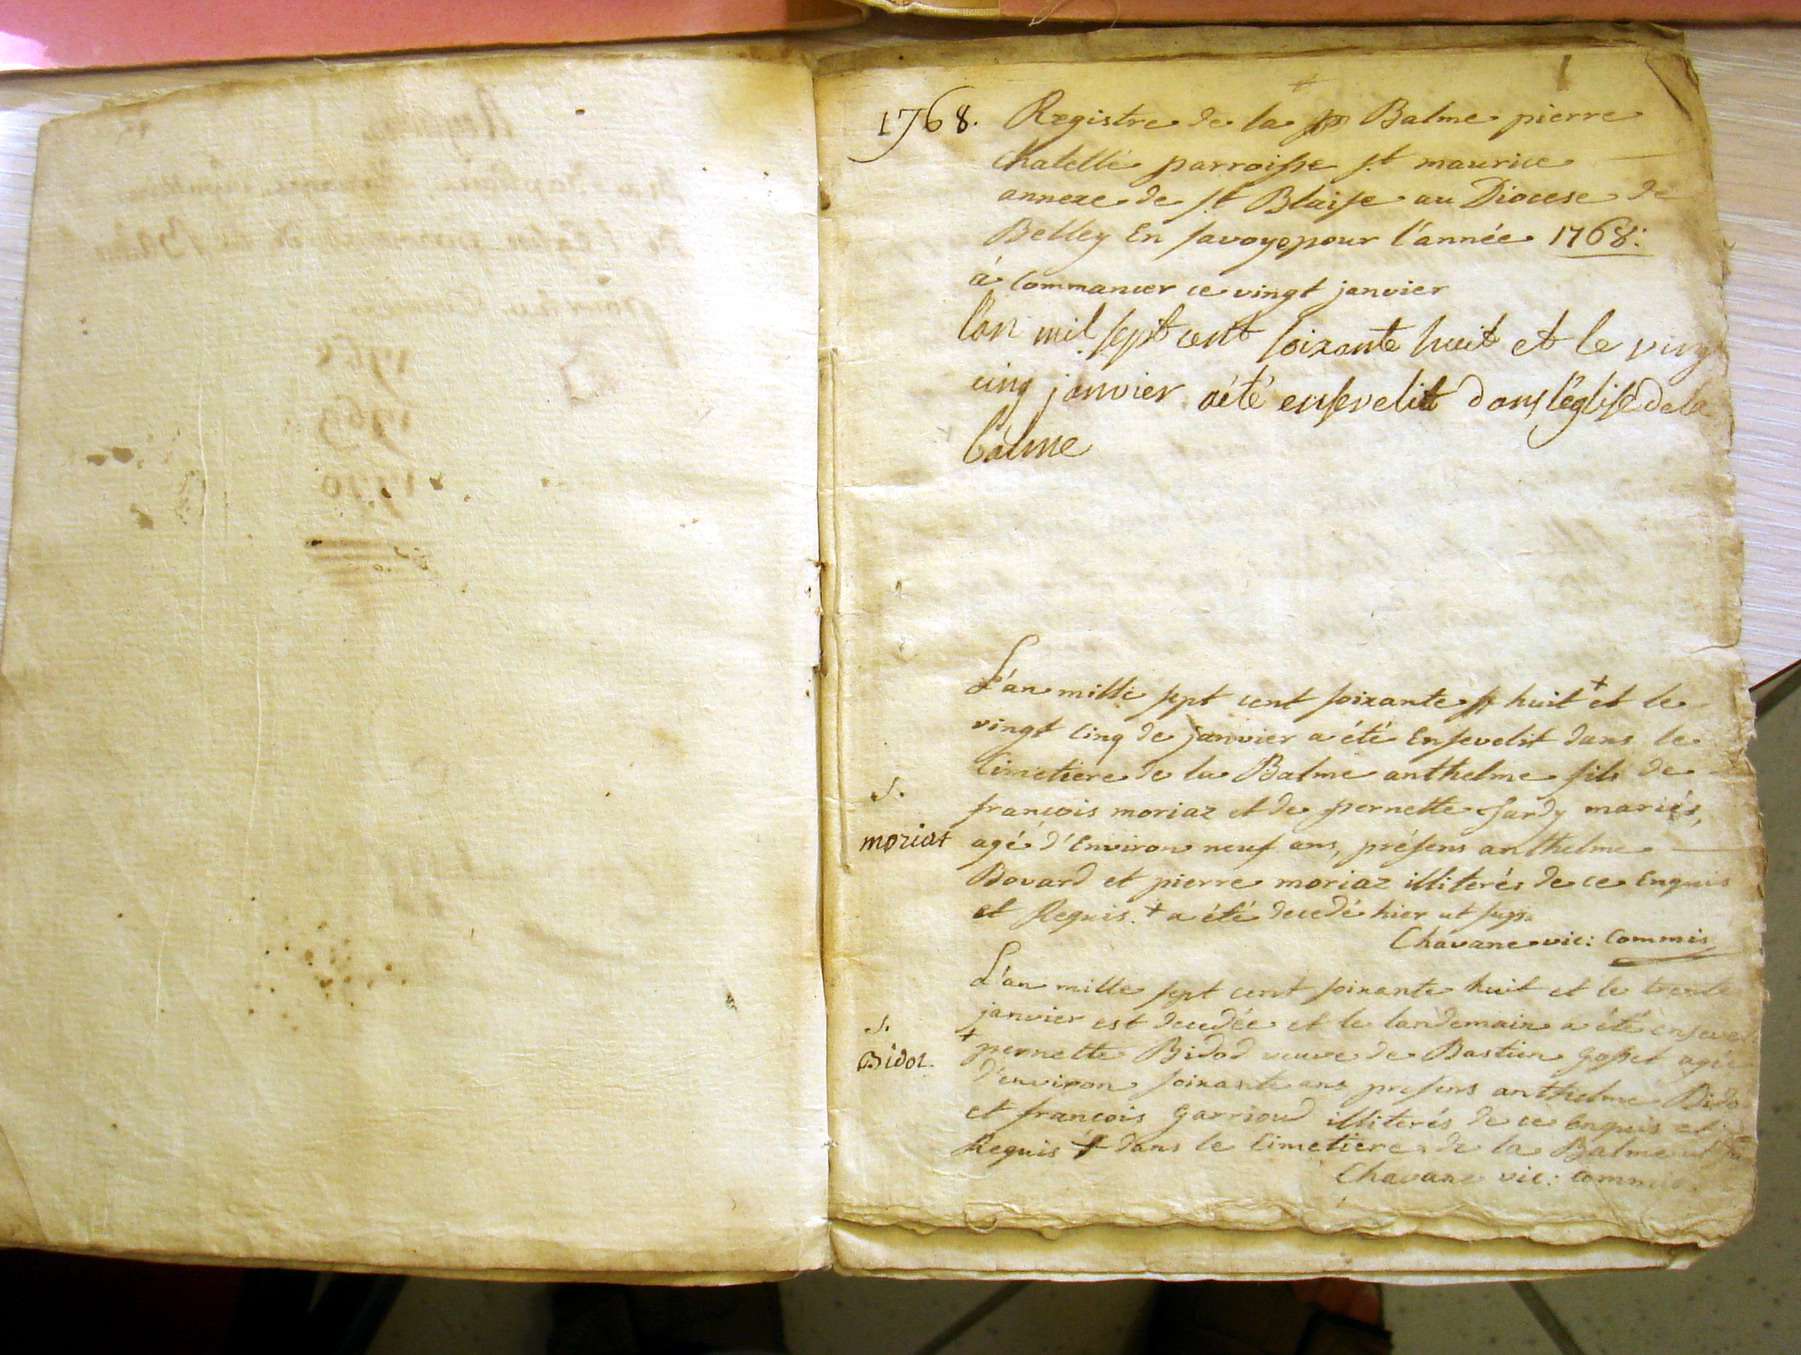 1768. Registre de la Balme pierre
Chatelle parroisse st maurice
annexe de st Blaise au Diocese de
Belley En Savoye pour l'année 1768:
à Commancer ce vingt janvier
l'an mil sept cent soixante huit et le vingt
cinq janvier a été ensevelit dans l'église de la
balme
L'an mille sept cent soixante huit + et le
vingt cinq de janvier a été Ensevelit dans le
Cimetiere de la Balme anthelme fils de
françois moriaz et de pernette mariés,
S.
moriat
agé d'Environ neuf ans, présens anthelme
Bovard et pierre moriaz illiterés de ce Enquis
et Requis. + a été decedé hier ut supr
Chavane vic: Commis
L'an mille sept cent soixante huit et le trente
janvier est decedée et le landemain a été enseve
S.
Bidot.
+ pernette Bidod veuve de Bastien agée
d'environ soixante ans presens anthelme Bido
et françois Garrioud illiterés de ce Enquis et
Requis + dans le Cimetiere de la Balme ut
Chavane vic: commis.
1768
1769
1770